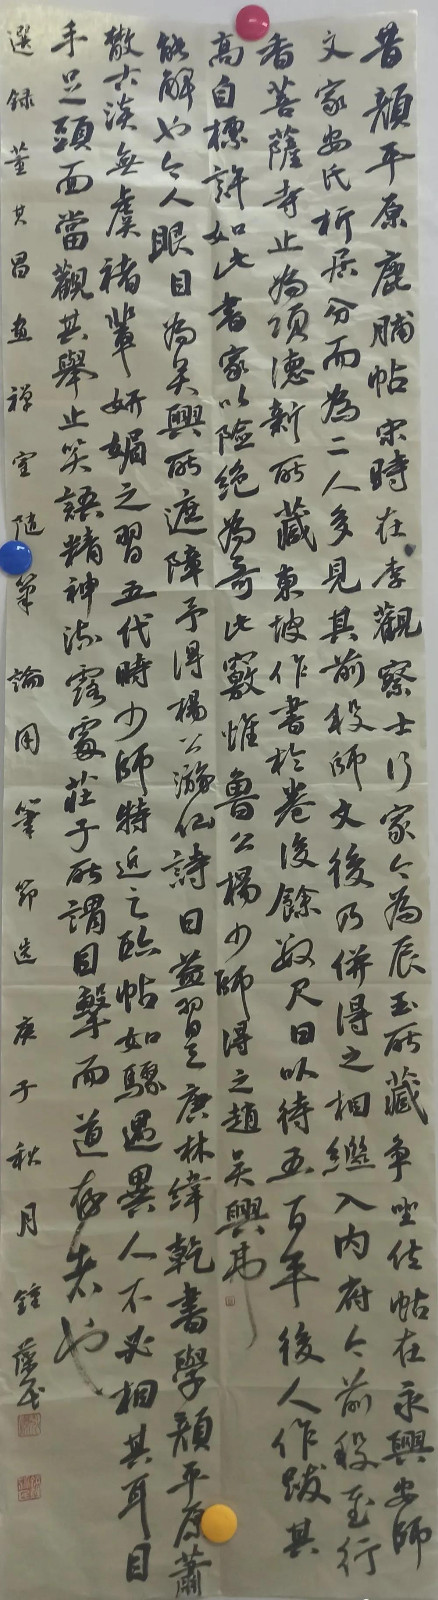 昔顏平原鹿脯帖宋時在李觀察士行家今為辰玉所藏爭坐位帖在永興安師
文家安氏析居分而為二人多見其前段師文後乃併得之相繼入內府今前段至行
香菩薩寺止為項德新所藏東坡作書於卷後餘數尺曰以待五百年後人作跋其
高自標許如此書家以險絕為奇此竅惟魯公楊少師得之趙吳興弗
能解也今人眼目為吳興所遮障予得楊公游仙詩日益習之唐林緯乾書學顏平原蕭
散古淡無虞褚輩妍媚之習五代時少師特近之臨帖如驟遇異人不必相其耳目
手足頭面當觀其舉止笑語精神流露處莊子所謂目擊而道存者也
選錄董其昌畫禪室隨筆論用筆節選庚子秋月鍾